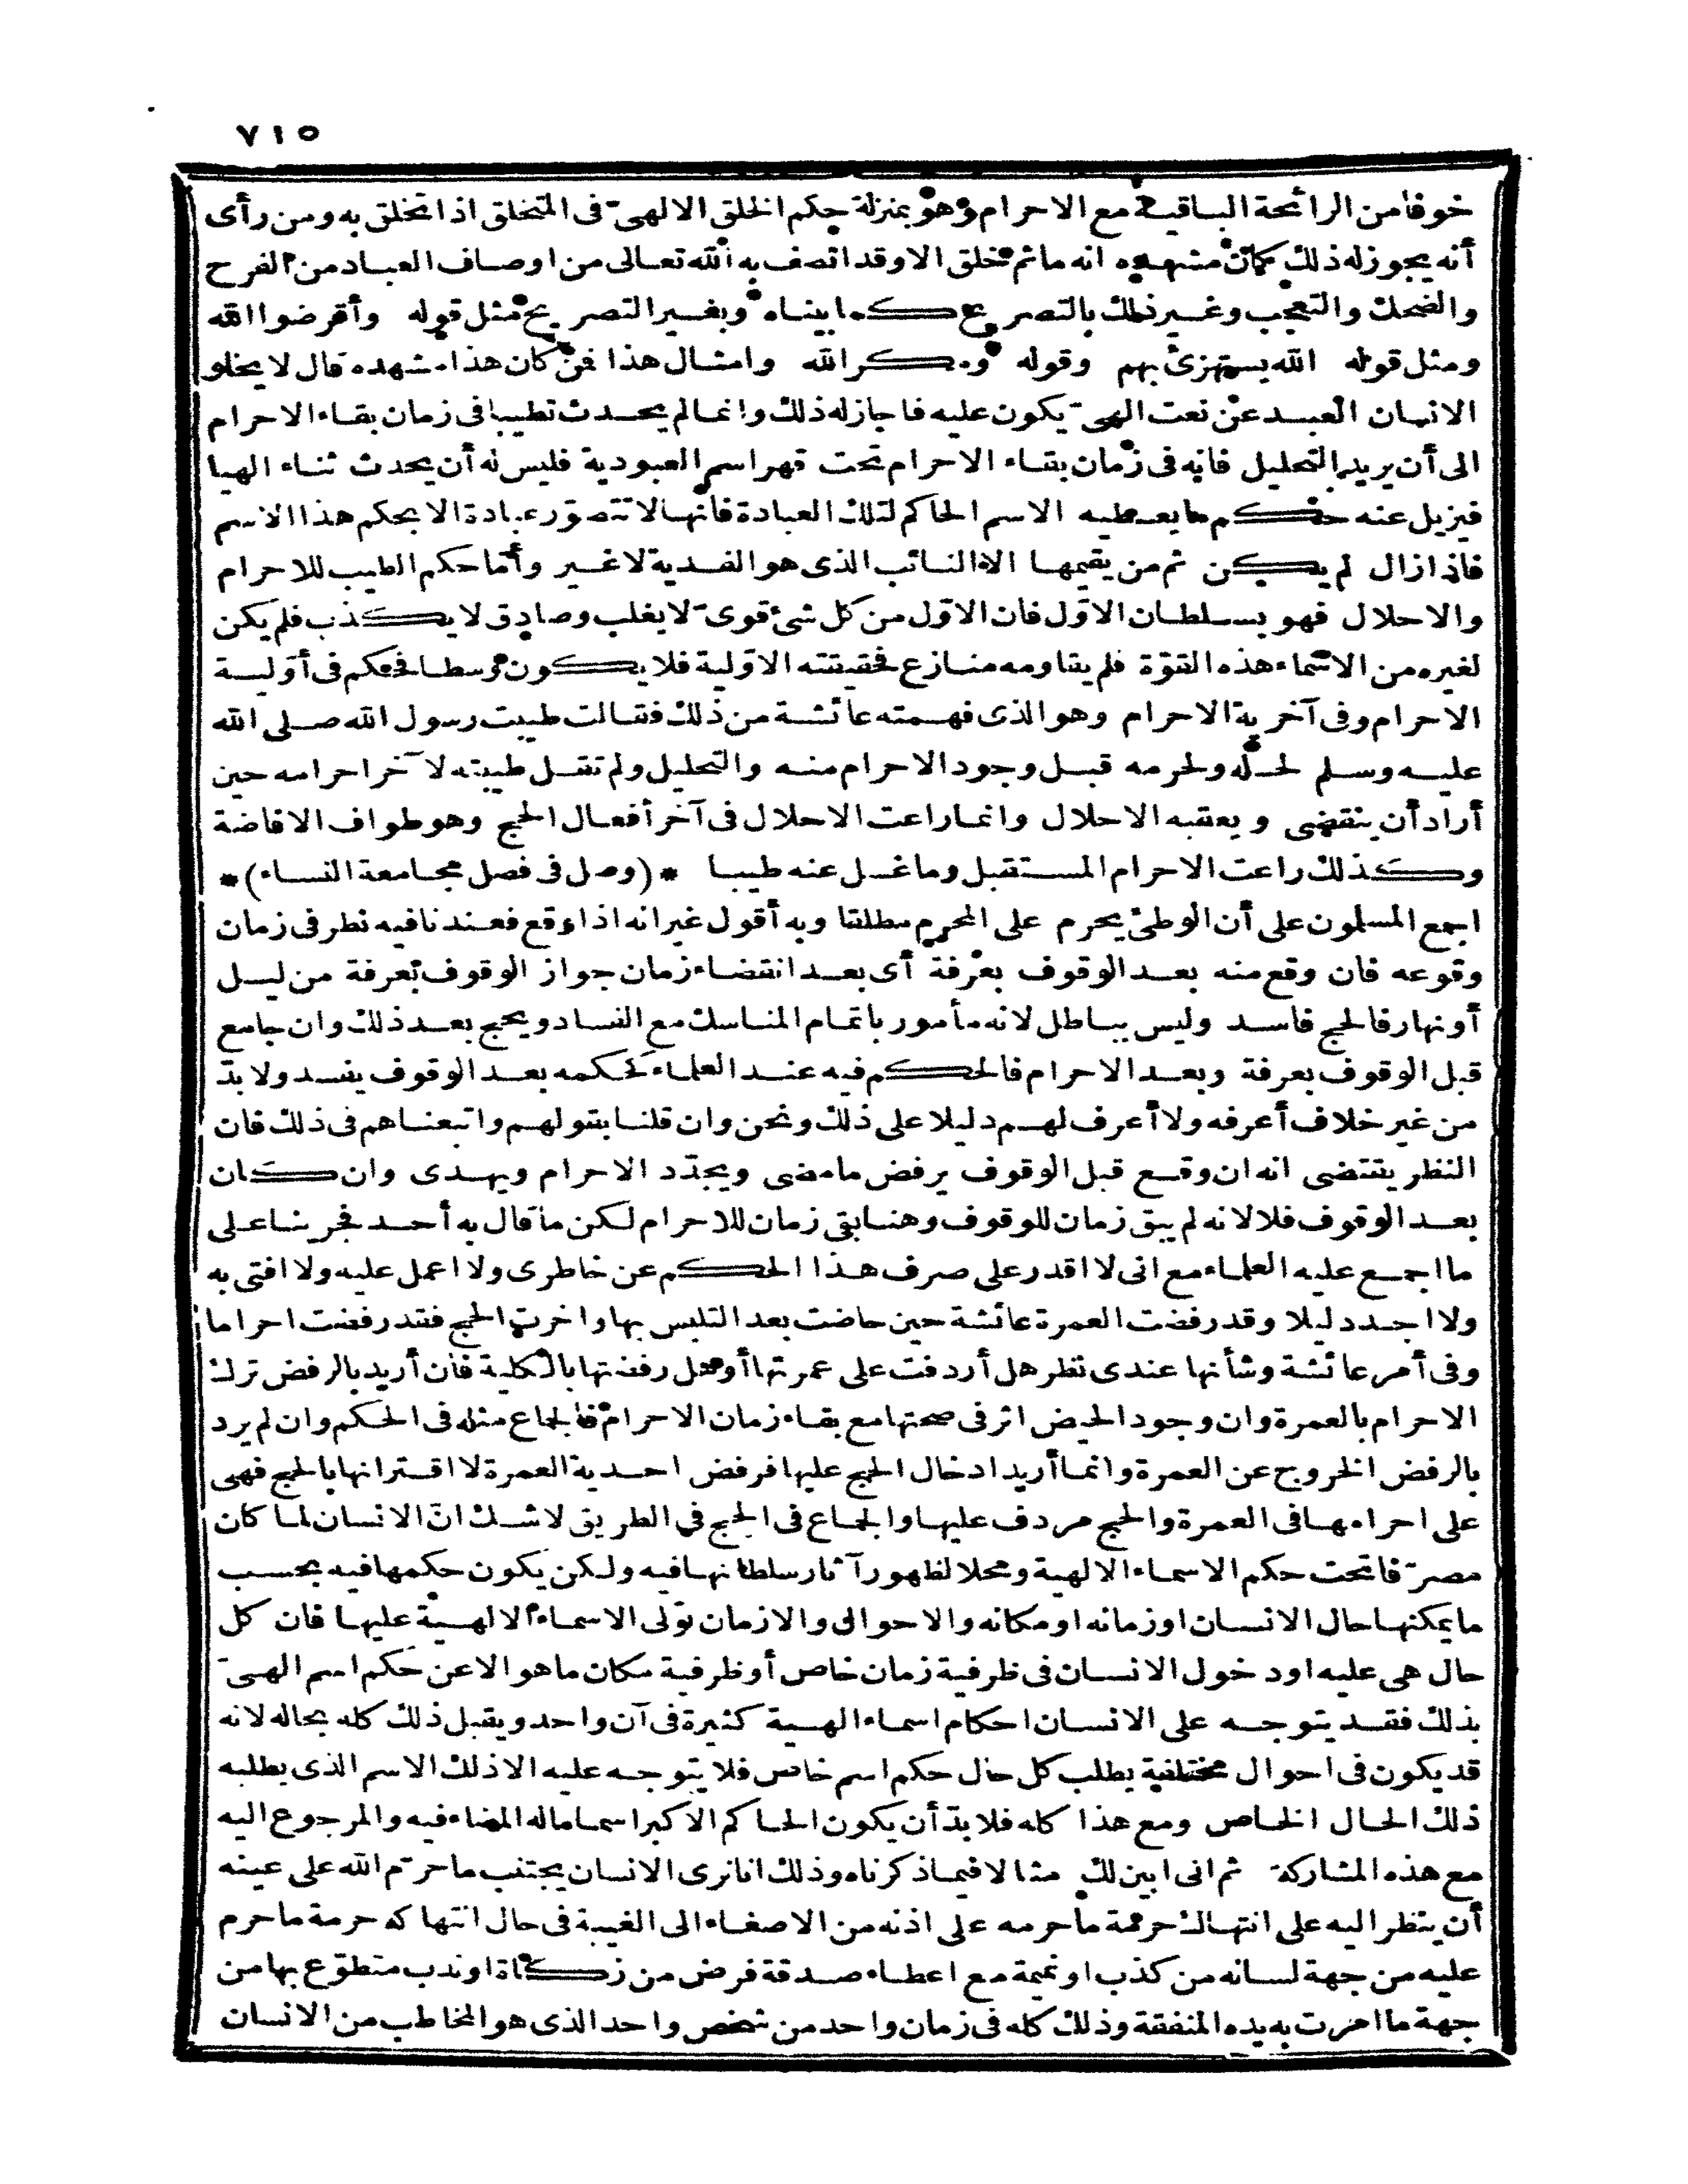 ٧١٥
خوفا من الرائحة الباقية مع الاحرام وهو بمنزلة حكم الخلق الالهىّ فى المتخلق اذا تخلق به ومن رأى
أنه يجوز له ذلك كان مشهده انه ما ثم تخلق الا وقد اتصف به الله تعالى من اوصاف العباد من الفرح
والضحك والتعجب وغير ذلك بالتصريح كما بيناه وبغير التصريح مثل قوله وأقرضوا الله
ومثل قوله الله يستهزئ بهم وقوله ومكر الله وامثال هذا فمن كان هذا مشهده قال لا يخلو
الانسان العبد عن نعت الهىّ يكون عليه فاجاز له ذلك وانما لم يحدث تطيبا فى زمان بقاء الاحرام
الى أن يريد التحليل فانه فى زمان بقاء الاحرام تحت قهر اسم العبودية فليس له أن يحدث ثناء الهيا
فيزيل عنه حكم ما يعطيه الاسم الحاكم لتلك العبادة فانها لا تتصوّر عبادة الا بحكم هذا الاسم
فاذا زال لم يكن ثم من يقيمها الا النائب الذى هو الفدية لا غير وأمّا حكم الطيب للاحرام
والاحلال فهو بسلطان الاوّل فان الاوّل من كل شئ قوىّ لا يغلب وصادق لا يكذب فلم يكن
لغيره من الاسماء هذه القوّة فلم يقاومه منازع فحقيقته الاوّلية فلا يكون وسطا فحكم فى أوّلية
الاحرام وفى آخرية الاحرام وهو الذى فهمته عائشة من ذلك فقالت طيبت رسول الله صلى الله
عليه وسلم لحله ولحرمه قبل وجود الاحرام منه والتحليل ولم تقل طيبته لآخر احرامه حين
أراد أن ينقضى ويعقبه الاحلال وانما راعت الاحلال فى آخر أفعال الحج وهو طواف الافاضة
وكذلك راعت الاحرام المستقبل وما غسل عنه طيبا * (وصل فى فصل مجامعة النساء) *
اجمع المسلمون على أن الوطئ يحرم على المحرم مطلقا وبه أقول غير انه اذا وقع فعندنا فيه نظر فى زمان
وقوعه فان وقع منه بعد الوقوف بعرفة أى بعد انقضاء زمان جواز الوقوف بعرفة من ليل
أو نهار فالحج فاسد وليس بباطل لانه مأمور باتمام المناسك مع الفساد ويحج بعد ذلك وان جامع
قبل الوقوف بعرفة وبعد الاحرام فالحكم فيه عند العلماء كحكمه بعد الوقوف يفسد ولا بدّ
من غير خلاف أعرفه ولا أعرف لهم دليلا على ذلك ونحن وان قلنا بقولهم واتبعناهم فى ذلك فان
النظر يقتضى انه ان وقع قبل الوقوف يرفض ما مضى ويجدّد الاحرام ويهدى وان كان
بعد الوقوف فلا لانه لم يبق زمان للوقوف وهنا بقى زمان للاحرام لكن ما قال به أحد فجرينا على
ما اجمع عليه العلماء مع انى لا اقدر على صرف هذا الحكم عن خاطرى ولا اعمل عليه ولا افتى به
ولا اجد دليلا وقد رفضت العمرة عائشة حين حاضت بعد التلبس بها واخرت الحج فقد رفضت احراما
وفى أمر عائشة وشأنها عندى نظر هل أردفت على عمرتها أو هل رفضتها بالكلية فان أريد بالرفض ترك
الاحرام بالعمرة وان وجود الحيض اثر فى صحتها مع بقاء زمان الاحرام فالجماع مثله فى الحكم وان لم يرد
بالرفض الخروج عن العمرة وانما أريد ادخال الحج عليها فرفض احدية العمرة لا اقترانها بالحج فهى
على احرامها فى العمرة والحج مردف عليها والجماع فى الحج فى الطريق لا شك انّ الانسان لما كان
مصرّفا تحت حكم الاسماء الالهية ومحلا لظهور آثار سلطانها فيه ولكن يكون حكمها فيه بحسب
ما يمكنها حال الانسان او زمانه او مكانه والاحوال والازمان تولى الاسماء الالهية عليها فان كل
حال هى عليه او دخول الانسان فى ظرفية زمان خاص أو ظرفية مكان ما هو الا عن حكم اسم الهىّ
بذلك فقد يتوجه على الانسان احكام اسماء الهية كثيرة فى آن واحد ويقبل ذلك كله بحاله لانه
قد يكون فى احوال مختلفة يطلب كل حال حكم اسم خاص فلا يتوجه عليه الا ذلك الاسم الذى يطلبه
ذلك الحال الخاص ومع هذا كله فلا بدّ أن يكون الحاكم الاكبر اسما ما له المضاء فيه والمرجوع اليه
مع هذه المشاركة ثم انى ابين لك مثالا فيما ذكرناه وذلك انا نرى الانسان يجتنب ما حرّم الله على عينه
أن ينظر اليه على انتهاك حرمة ما حرمه على اذنه من الاصغاء الى الغيبة فى حال انتهاكه حرمة ما حرم
عليه من جهة لسانه من كذب او نميمة مع اعطاء صدقة فرض من زكاة او ندب متطوّع بها من
جهة ما امرت به يده المنفقة وذلك كله فى زمان واحد من شخص واحد الذى هو المخاطب من الانسان